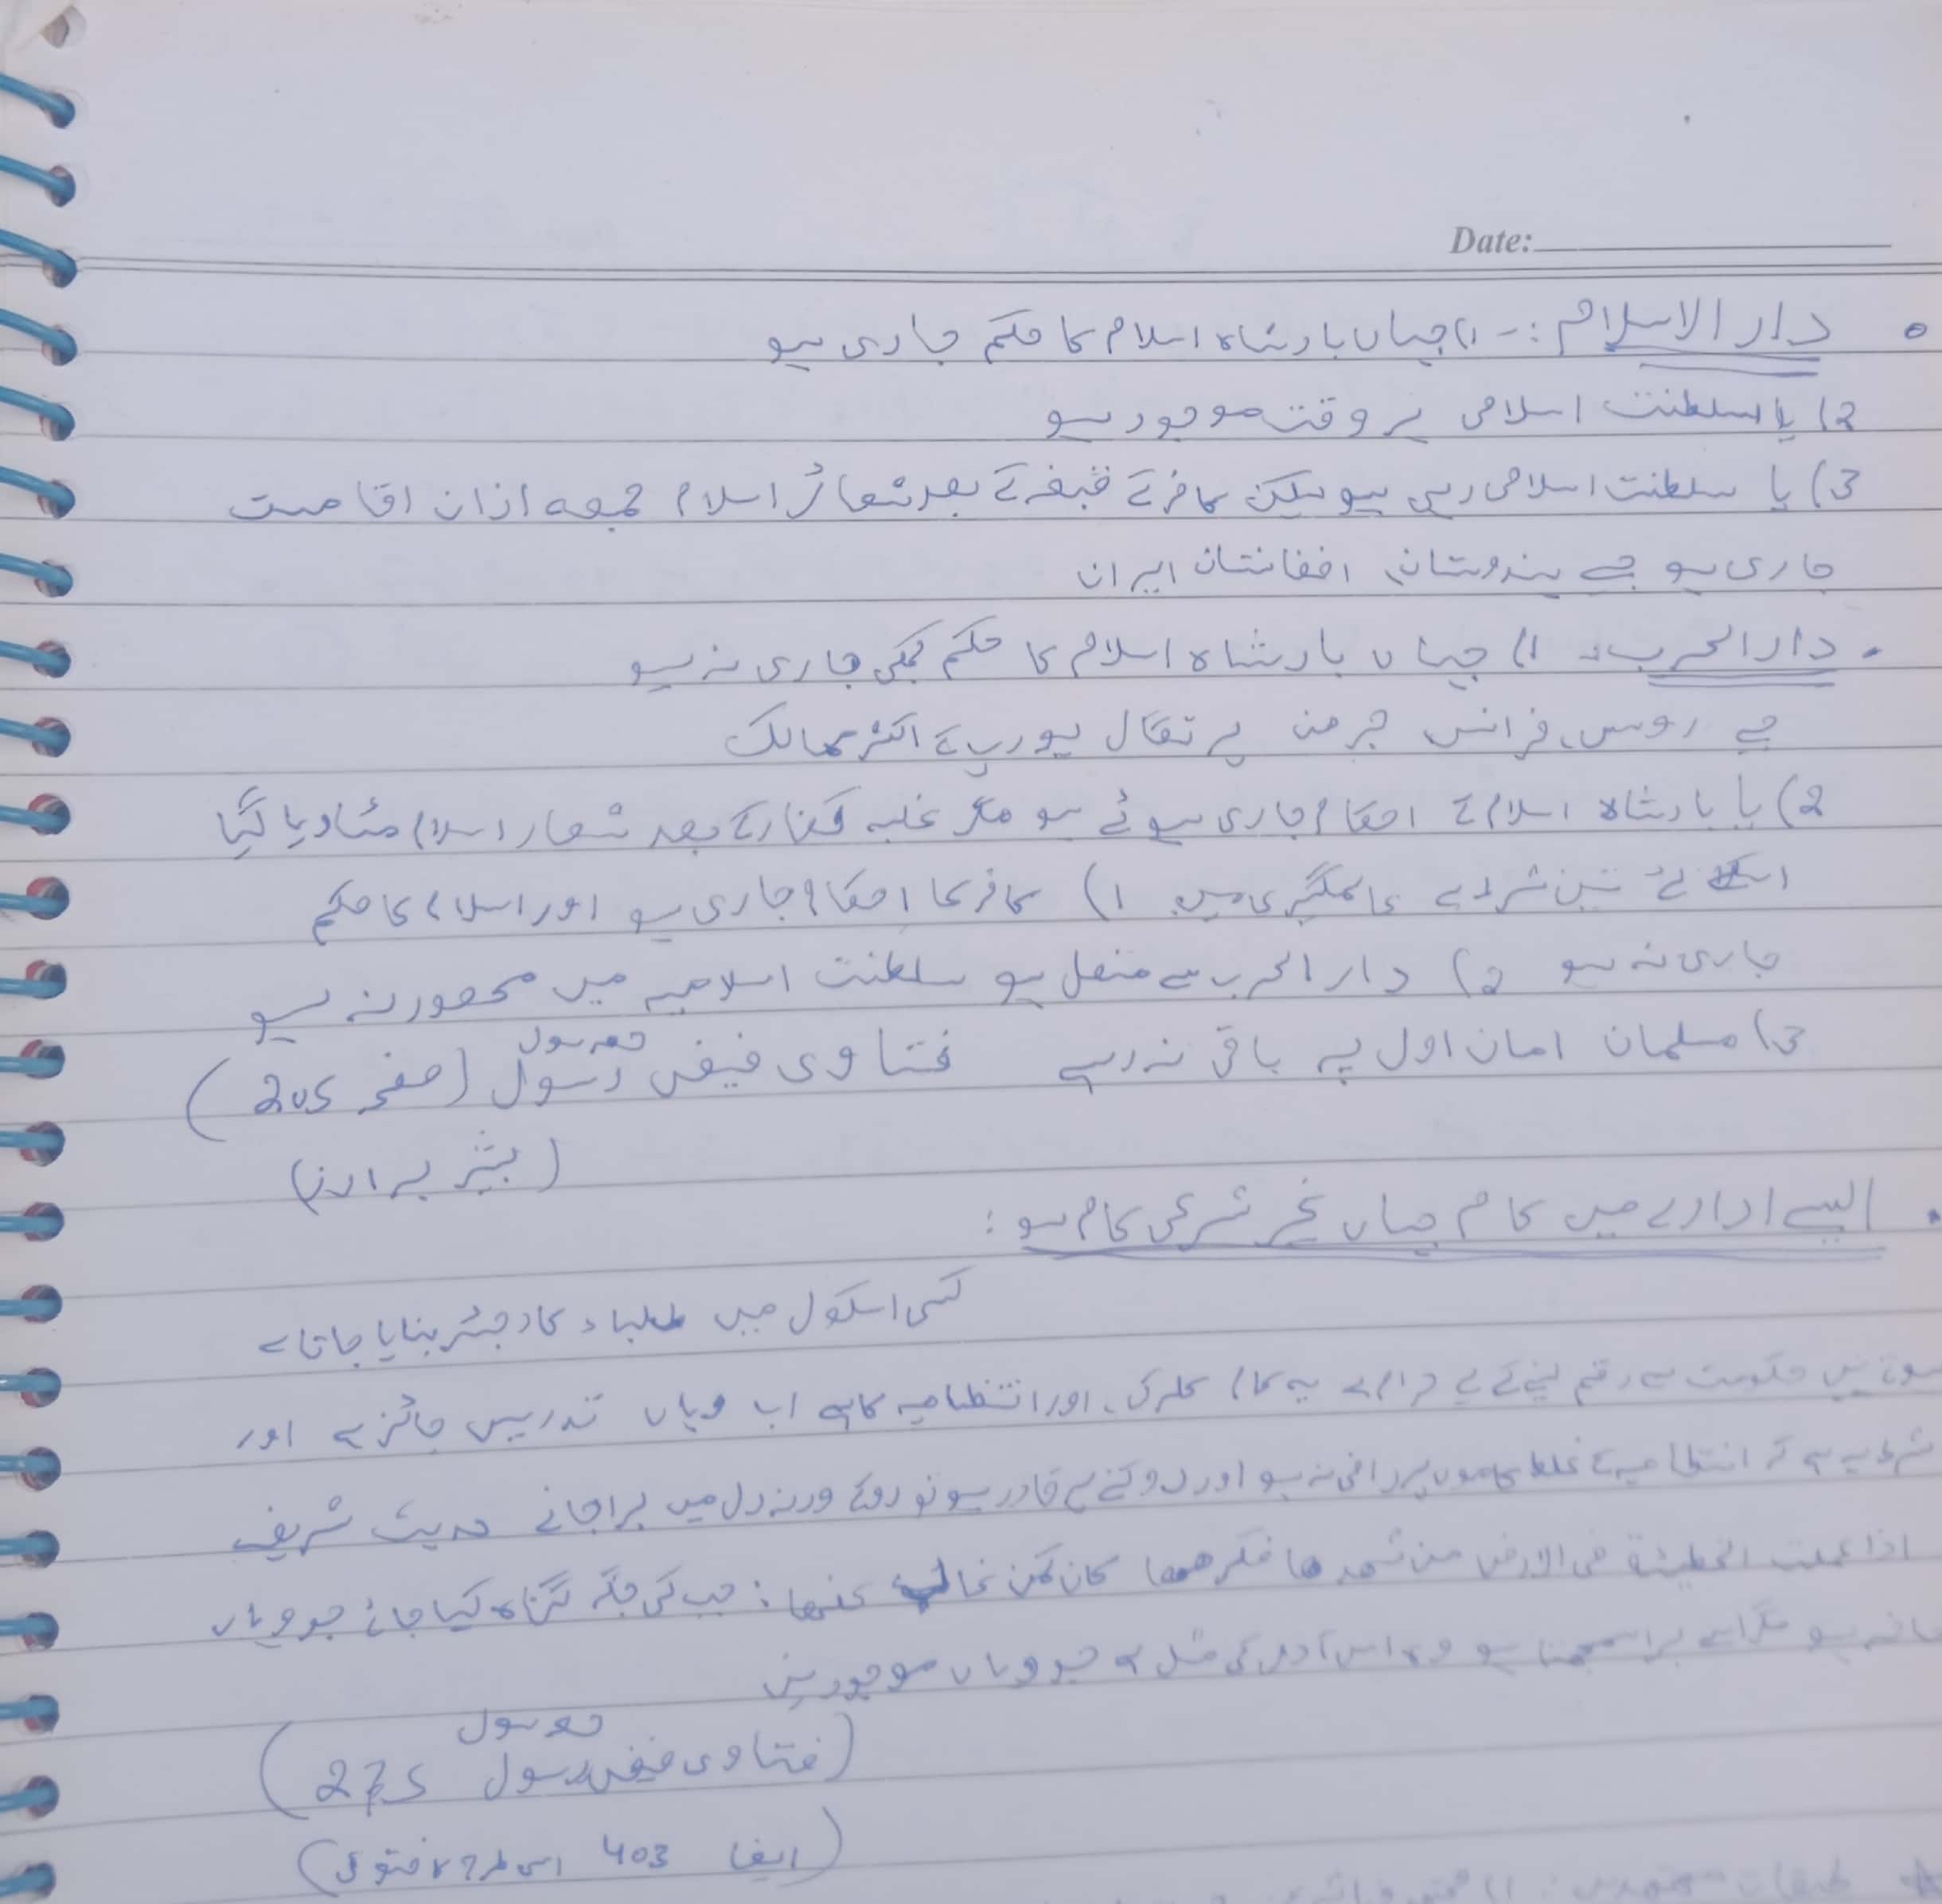 Date:
دار الاسلام :- 1) جہاں بادشاہ اسلام کا حکم جاری ہو
2) یا سلطنت اسلامی ہر وقت موجود ہو
3) یا سلطنت اسلامی رہی ہو لیکن کافر کے قبضہ کے بعد شعائر اسلام جمعہ اذان اقامت
جاری ہو جیسے ہندوستان، افغانستان ایران
دار الحرب: 1) جہاں بادشاہ اسلام کا حکم کبھی جاری نہ ہو
جیسے روس، فرانس جرمن پرتگال یورپ کے اکثر ممالک
2) یا بادشاہ اسلام کے احکام جاری ہوئے ہو مگر غلبہ کفار کے بعد شعار اسلام مٹا دیا گیا
اسکے لئے تین شرط ہے عالمگیری میں 1) کافر کا احکام جاری ہو اور اسلام کا حکم
جاری نہ ہو 2) دار الحرب سے متصل ہو سلطنت اسلامیہ میں محصور نہ ہو
3) مسلمان امان اول پہ باقی نہ رہے فتاوی فیض رسول (صفحہ 205)
حصہ سول
(بشیر برادرز)
ایسے ادارے میں کام جہاں غیر شرعی کام ہو :
کسی اسکول میں طلباء کا رجسٹر بنایا جاتا ہے
حکومت سے رقم لینے کے لیے حرام ہے یہ کام کلرک، اور انتظامیہ کا ہے اب وہاں تدریس جائز ہے اور
شرط یہ ہے کہ انتظامیہ کے غلط کاموں پر راضی نہ ہو اور روکنے پے قادر ہو تو روکے ورنہ دل میں برا جانے حدیث شریف
اذا عملت الخطیئة فی الارض من شھدھا فکرھھا کان کمن غاب عنھا : جب کسی جگہ گناہ کیا جائے جو وہاں
حاضر ہو مگر اسے برا سمجھتا ہو وہ اس آدمی کی مثل ہے جو وہاں موجود نہیں
حصہ سول
(فتاوی فیض رسول 275)
(ایضا 403 اسی طرح کا فتوی)